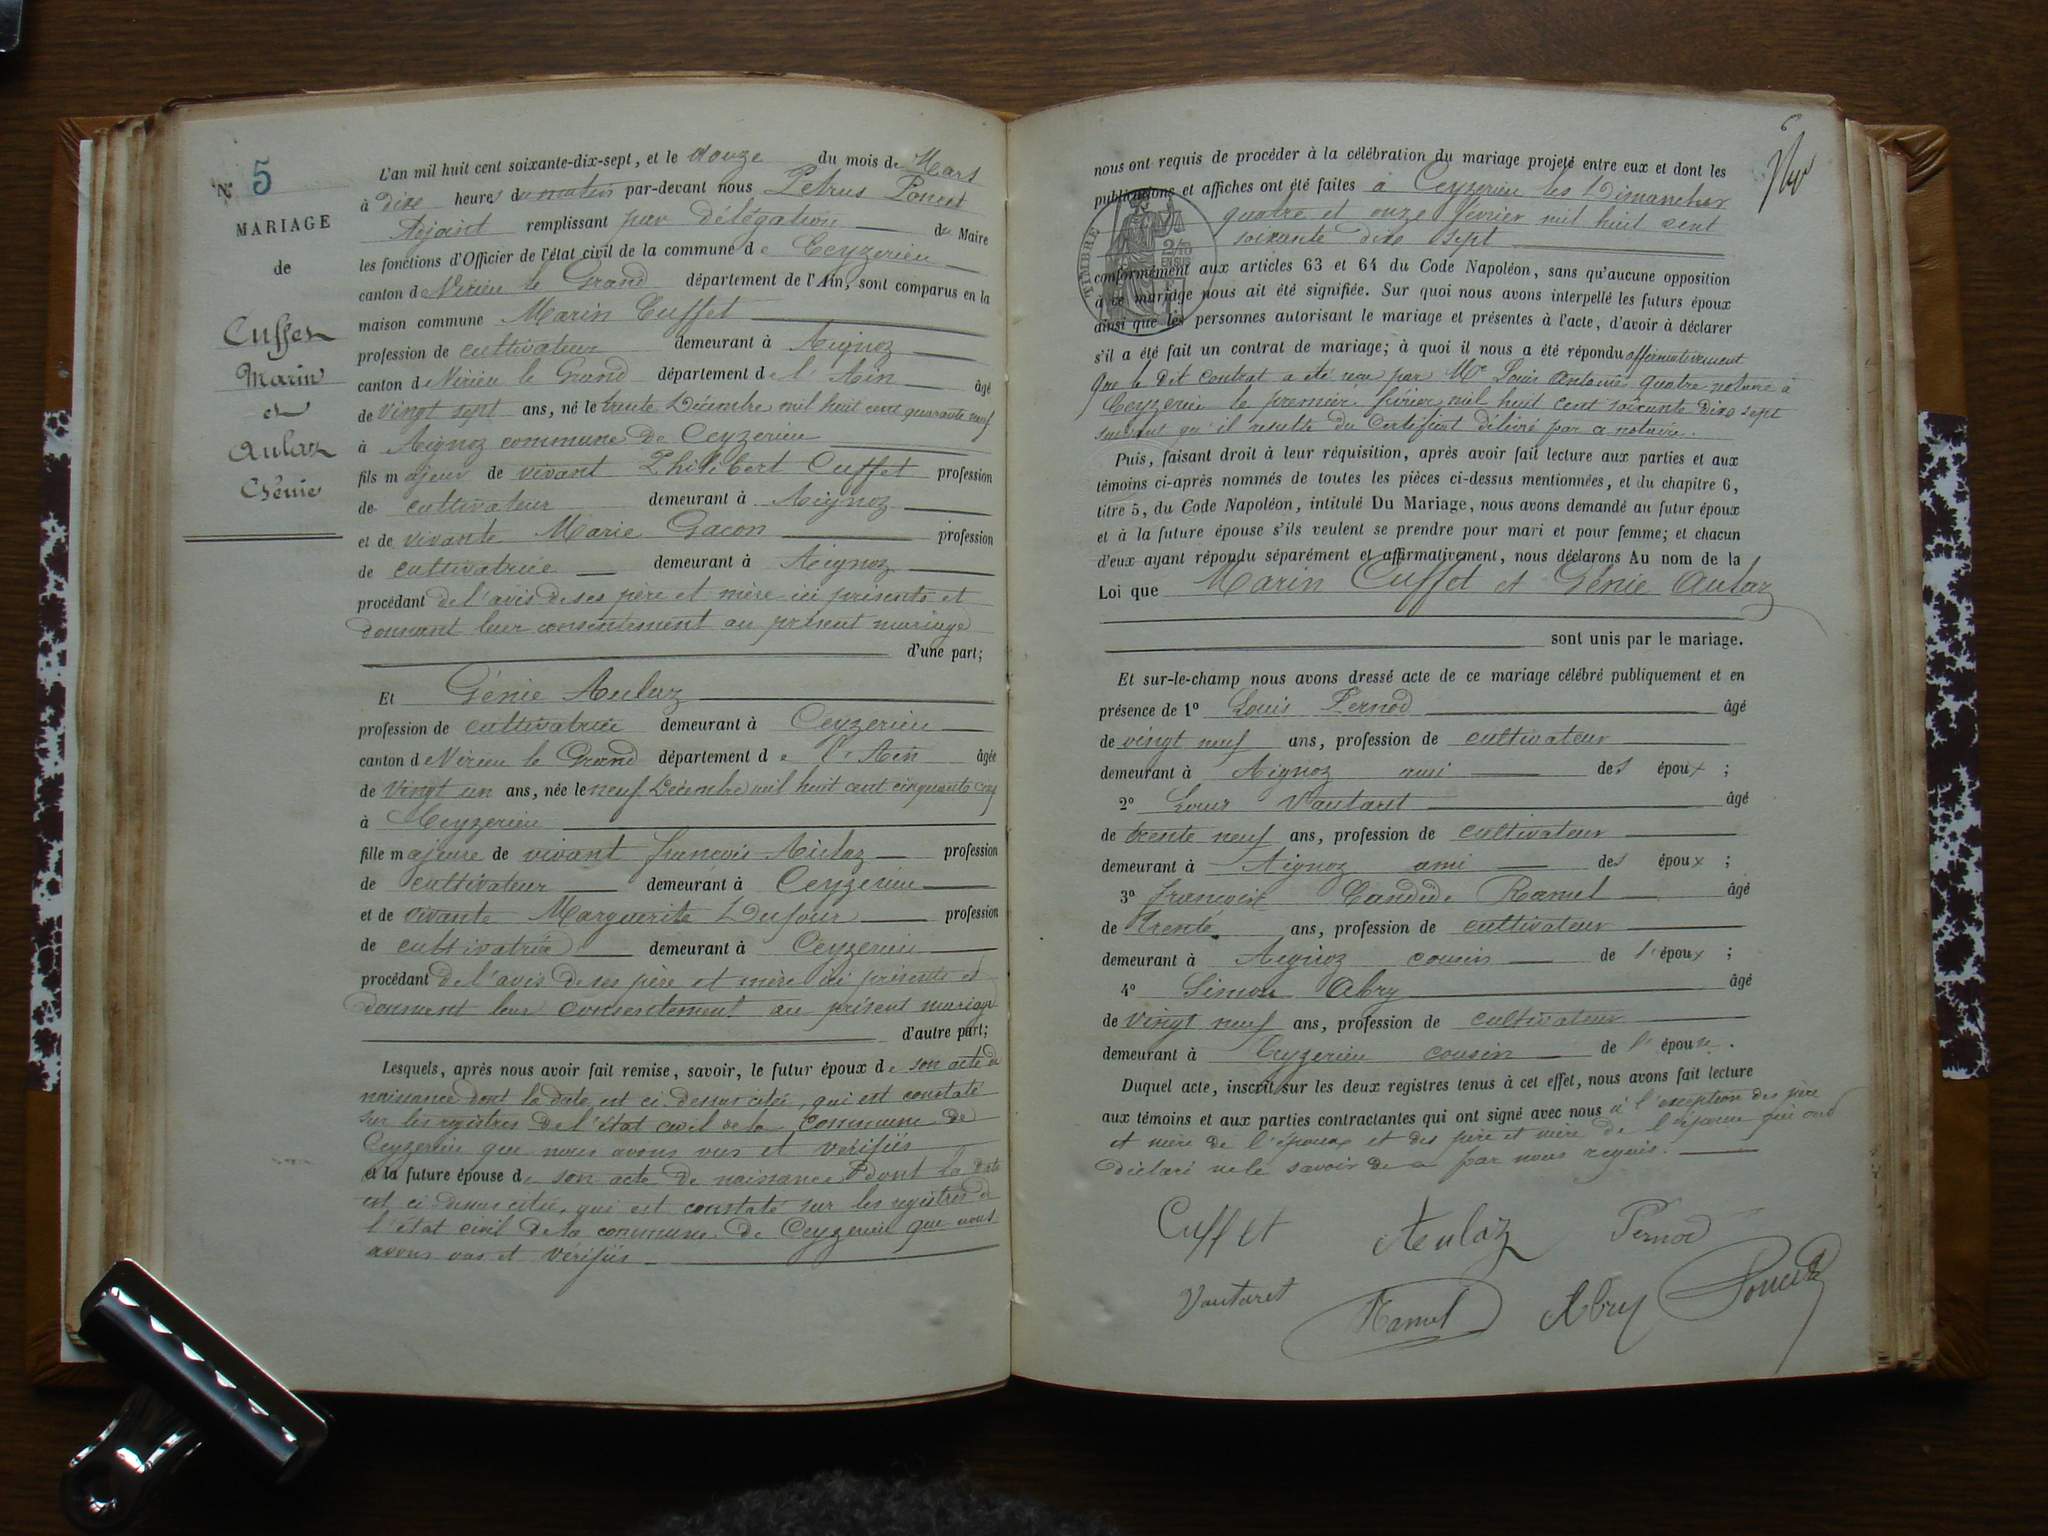 N° 5
MARIAGE
de
Cuffet
Marin
et
Aulaz
Génie
L'an mil huit cent soixante-dix-sept, et le douze du mois de Mars
à dixe heures du matin par-devant nous Petrus Poncet
Adjoint remplissant par délégation du Maire
les fonctions d'Officier de l'état civil de la commune de Ceyzerieu
canton de Virieu le Grand département de l'Ain, sont comparus en la
maison commune Marin Cuffet
profession de cultivateur demeurant à Aignoz
canton de Virieu le Grand département de l'Ain âgé
de vingt sept ans, né le trente Décembre mil huit cent quarante neuf
à Aignoz commune de Ceyzerieu
fils majeur de vivant Philibert Cuffet profession
de cultivateur demeurant à Aignoz
et de vivante Marie Gacon profession
de cultivatrice demeurant à Aignoz
procédant de l'avis de ses père et mère ici présents et
donnant leur consentement au présent mariage
d'une part;
Et Génie Aulaz
profession de cultivatrice demeurant à Ceyzerieu
canton de Virieu le Grand département de l'Ain âgée
de Vingt un ans, née le neuf Décembre mil huit cent cinquante cinq
à Ceyzerieu
fille majeure de vivant françois Aulaz profession
de cultivateur demeurant à Ceyzerieu
et de vivante Marguerite Dufour profession
de cultivatrice demeurant à Ceyzerieu
procédant de l'avis de ses père et mère ici présents et
donnant leur consentement au présent mariage
d'autre part;
Lesquels, après nous avoir fait remise, savoir, le futur époux de son acte de
naissance dont la date est ci dessus citée, qui est constaté
sur les registres de l'état civil de la commune de
Ceyzerieu que nous avons vus et vérifiés
et la future épouse de son acte de naissance dont la date
est ci dessus citée, qui est constaté sur les registres de
l'état civil de la commune de Ceyzerieu que nous
avons vus et vérifiés
6
nous ont requis de procéder à la célébration du mariage projeté entre eux et dont les
publications et affiches ont été faites à Ceyzerieu les Dimanches
quatre et onze février mil huit cent
soixante dixe sept
TIMBRE
2/10
EN SUS
conformément aux articles 63 et 64 du Code Napoléon, sans qu'aucune opposition
à ce mariage nous ait été signifiée. Sur quoi nous avons interpellé les futurs époux
ainsi que les personnes autorisant le mariage et présentes à l'acte, d'avoir à déclarer
s'il a été fait un contrat de mariage; à quoi il nous a été répondu affirmativement
que le dit contrat a été reçu par Me Louis Antoine quatre notaire à
Ceyzerieu le premier février mil huit cent soixante dixe sept
suivant qu'il résulte du certificat délivré par ce notaire.
Puis, faisant droit à leur réquisition, après avoir fait lecture aux parties et aux
témoins ci-après nommés de toutes les pièces ci-dessus mentionnées, et du chapitre 6,
titre 5, du Code Napoléon, intitulé Du Mariage, nous avons demandé au futur époux
et à la future épouse s'ils veulent se prendre pour mari et pour femme; et chacun
d'eux ayant répondu séparément et affirmativement, nous déclarons Au nom de la
Loi que Marin Cuffet et Génie Aulaz
sont unis par le mariage.
Et sur-le-champ nous avons dressé acte de ce mariage célébré publiquement et en
présence de 1° Louis Pernod âgé
de vingt neuf ans, profession de cultivateur
demeurant à Aignoz ami des époux ;
2° Louis Vautaret âgé
de trente neuf ans, profession de cultivateur
demeurant à Aignoz ami des époux ;
3° françois Candide Ramel âgé
de Trente ans, profession de cultivateur
demeurant à Aignoz cousin de l'époux ;
4° Simon Abry âgé
de Vingt neuf ans, profession de cultivateur
demeurant à Ceyzerieu cousin de l'épouse.
Duquel acte, inscrit sur les deux registres tenus à cet effet, nous avons fait lecture
aux témoins et aux parties contractantes qui ont signé avec nous à l'exception des père
et mère de l'époux et des père et mère de l'épouse qui ont
déclaré ne le savoir de ce par nous requis.
Cuffet Aulaz Pernod
Vautaret Ramel Abry Poncet